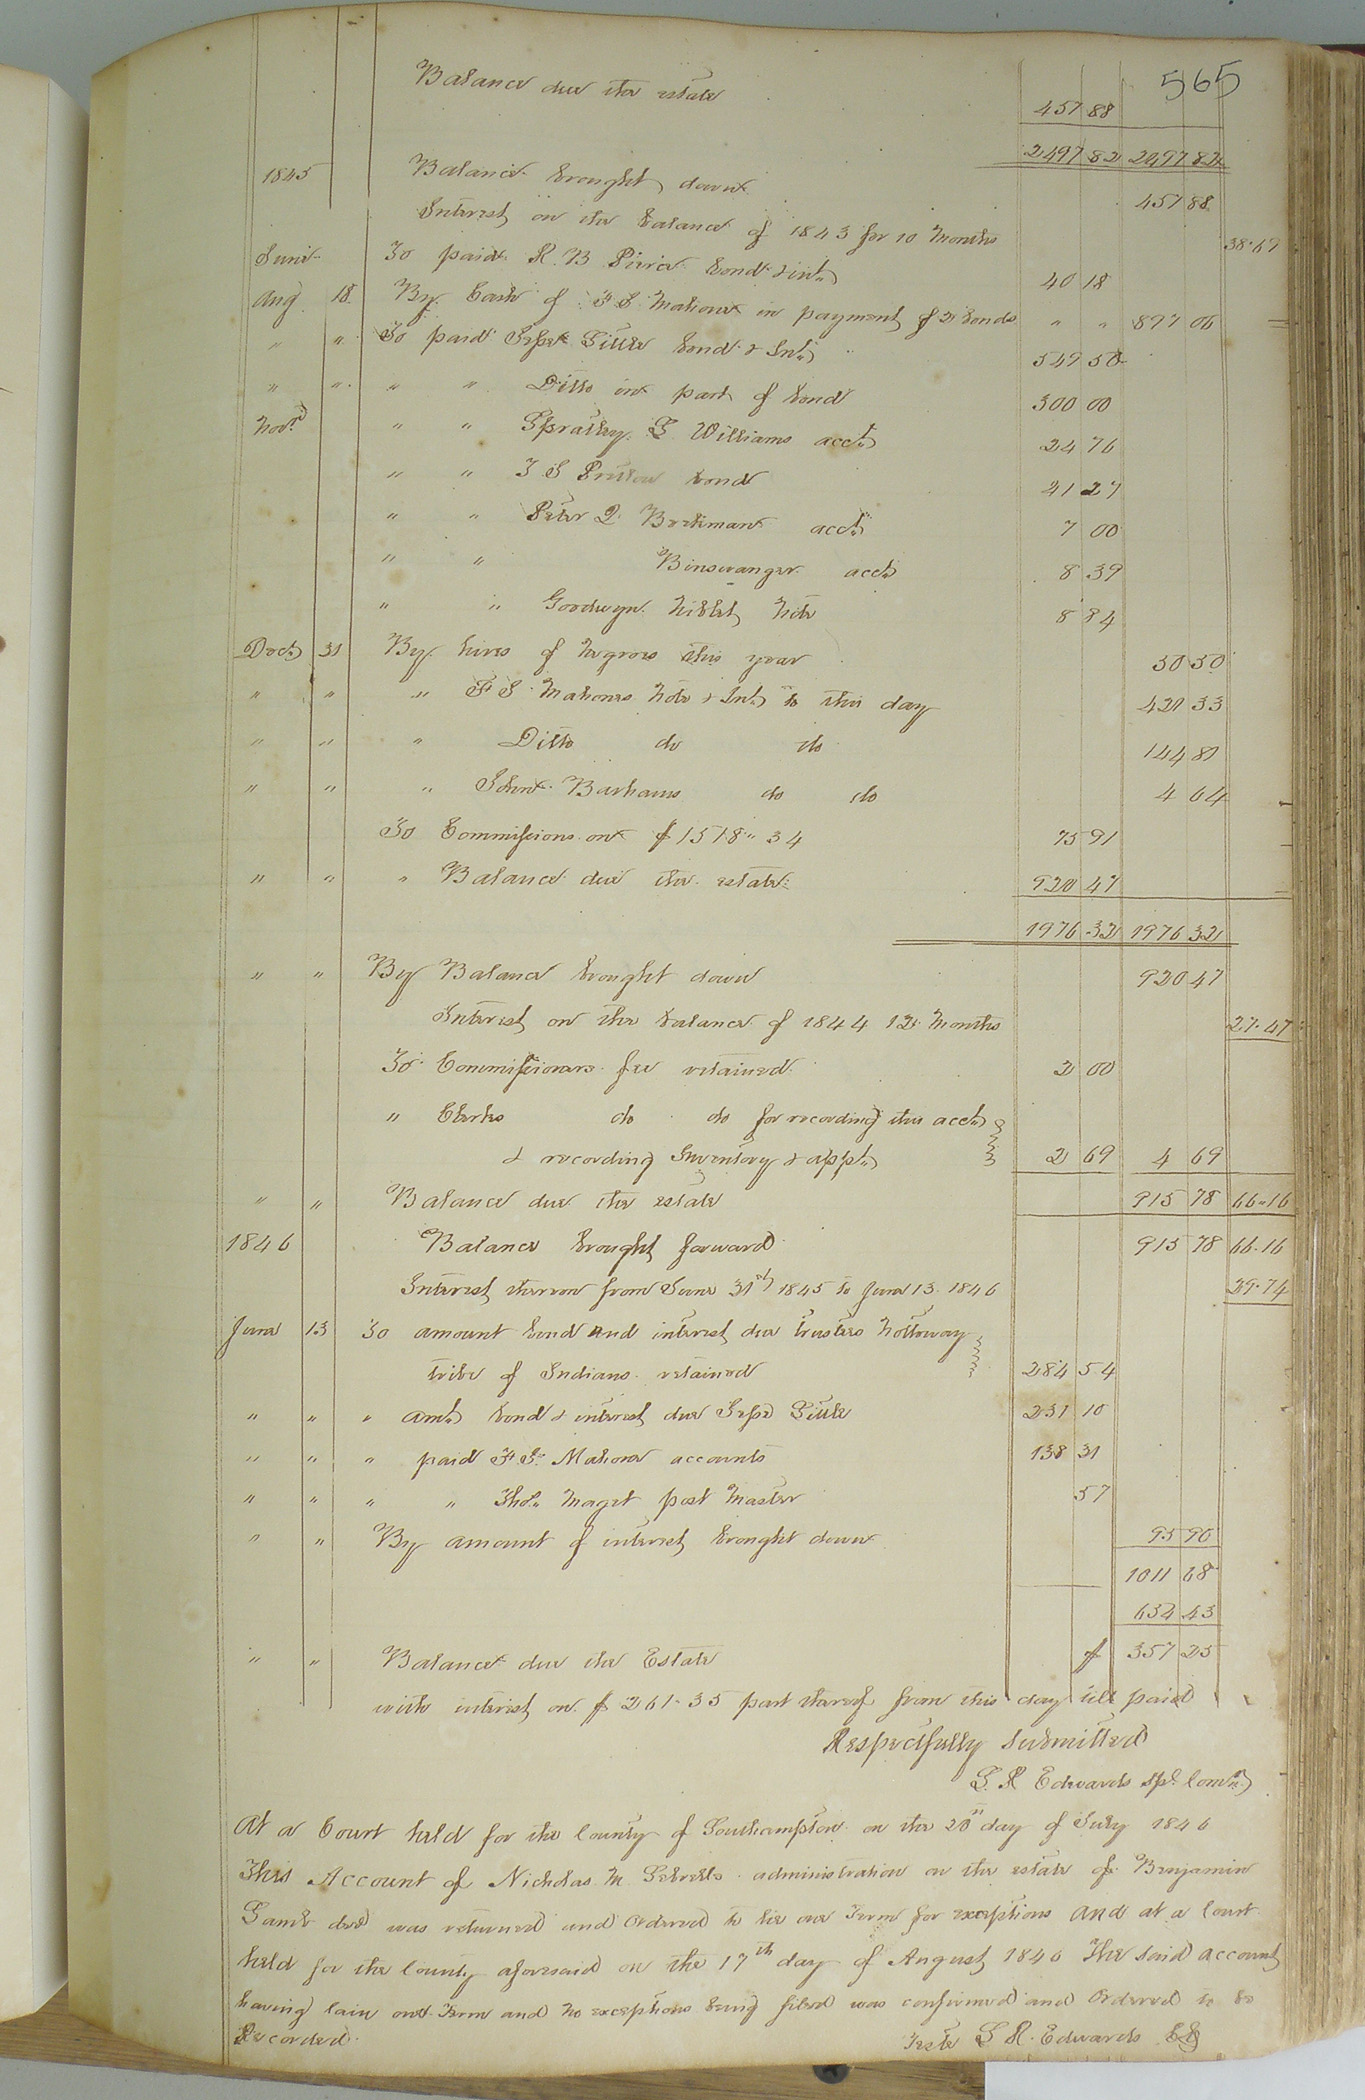 565
Balance due the estate 457 88
2497 82 2497 82
1845 Balance brought down 457 88
Interest on the balance of 1843 for 10 Months 38.69
June To paid R B Pierce bond & int. 40 18
Aug 18 By Cash of F S Mahone in payment of 2 bonds " " 897 06
" " To paid Jesse Little bond & Int. 549 50
" " " " Ditto in part of bond 300 00
Nov. " " Spratley & Williams acct. 24 76
" " J S bond 21 27
" " Peter acct. 7 00
" " Binswanger acct. 8 39
" " Goodwyn Niblet Note 8 84
Dec. 31 By hires of Negroes this year 50 50
" " " F S Mahones Note & Int. to this day 421 33
" " " Ditto do do 144 81
" " " Barhams do do 4 64
To Commissions on $ 1518 " 34 75 91
" " " Balance due the estate 920 47
1976 32 1976 32
" " By Balance brought down 920 47
Interest on the balance of 1844 12 Months 27.47
To Commissioners fee retained 2 00
" Clerks do do for recording this acct.
& recording Inventory & appt. 2 69 4 69
" " Balance due the estate 915 78 66.16
1846 Balance brought forward 915 78 66.16
Interest thereon from 31st 1845 to June 13 1846 29.74
June 13 To amount bond and interest due trustees Nottoway
tribe of Indians retained 284 54
" " " amt. bond & interest due Jesse Little 231 10
" " " paid F S. Mahone accounts 138 21
" " " " Thos. Maget post Master 57
" " By amount of interest brought down 95 90
1011 68
654 43
" " Balance due the Estate $ 357 25
with interest on $ 261.35 part thereof from this day till paid
Respectfully submitted
L. R Edwards spl. Comr.
At a Court held for the County of Southampton on the 20th day of July 1846
This Account of Nicholas M Sebrells administration on the estate of Benjamin
Lamb decd was returned and Ordered to lie one Term for exceptions and at a Court
held for the County aforesaid on the 17th day of August 1846 The said account
having lain one Term and no exceptions being filed was confirmed and Ordered to be
Recorded. Teste L R. Edwards CC